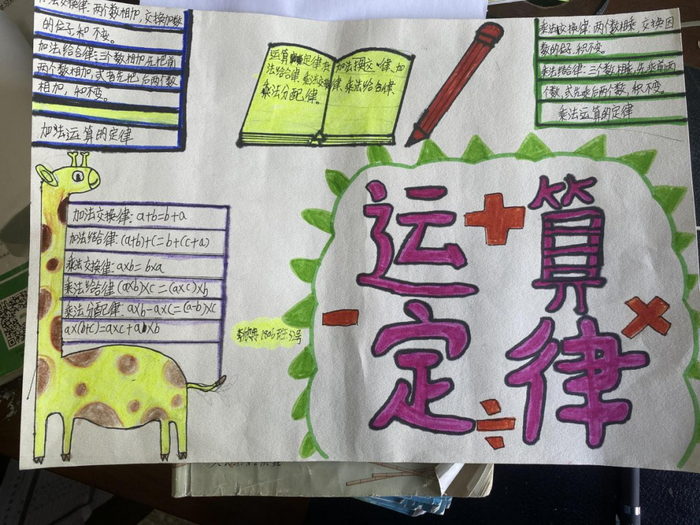 加法交换律:两个数相加,交换加数
的位子,和不变。
加法结合律:三个数相加,先把前
两个数相加,或者先把后两个数
相加,和不变。
加法运算的定律
运算定律有
加法交换律、加
法结合律、乘法交换律、乘法结合律
乘法分配律。
乘法交换律:两个数相乘,交换因
数的位子,积不变。
乘法结合律:三个数相乘,先乘前两
个数,或先乘后两个数,积不变。
乘法运算的定律
加法交换律:a+b=b+a
加法结合律:(a+b)+c=b+(c+a)
乘法交换律:a×b=b×a
乘法结合律(a×b)×c=(a×c)×b
乘法分配律:a×b-a×c=(a-b)×c
a×(b+c)=a×c+a×b
运算
定律